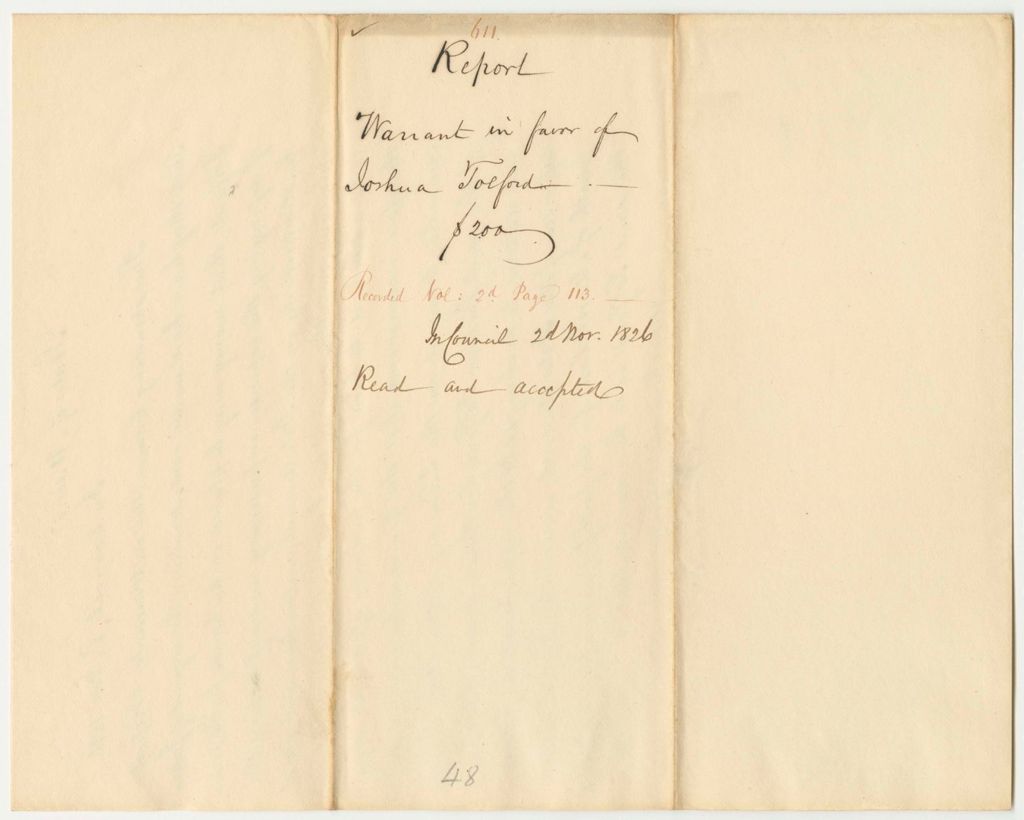 611.
Report
Warrant in favor of
Joshua Tolford
$200
Recorded Vol: 2d Page 113.
In Council 2d Nov. 1826
Read and accepted
48